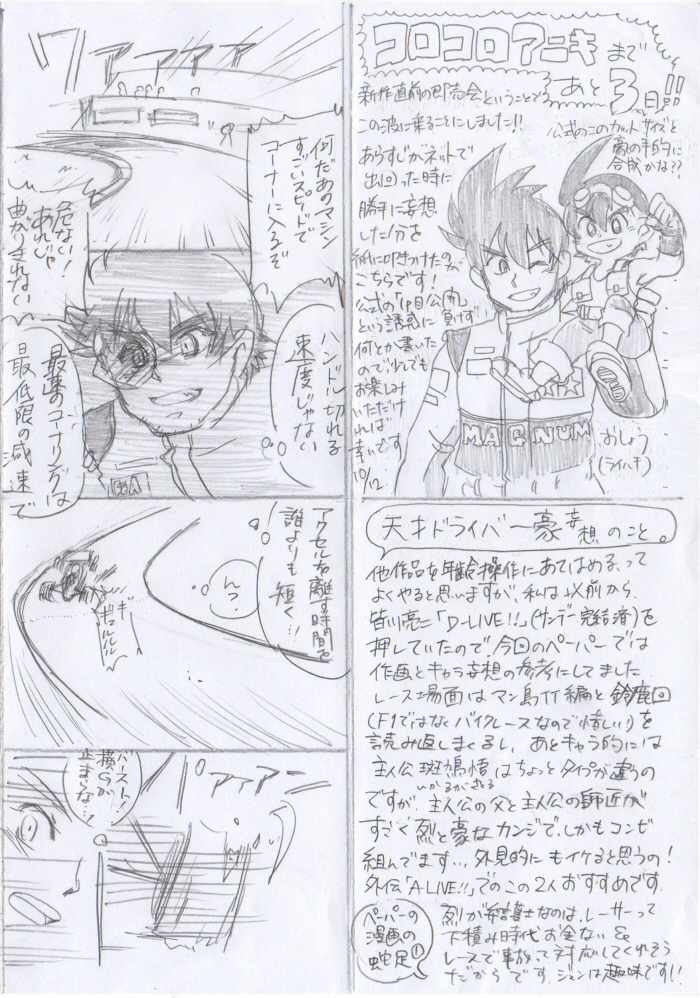 コロコロアニキまで
あと3日!!
新作直前の即売会ということで
この波に乗ることにしました!!
あらすじがネットで
出回った時に
勝手に妄想
した1分を
紙に叩きつけたのが
こちらです!
公式の
という誘惑に負けず
何とか書いた
ので少しでも
お楽しみ
いただけ
れば
幸いです
10/12
公式のこのカットサイズと
豪の手的に
合成かな??
MAGNUM
おしょう
(ライハチ)
ワァァァァ
何だあのマシン
すごいスピードで
コーナーに入るぞ
危ない!
あれじゃ
曲がりきれない
ハンドル切れる
速度じゃない
最速のコーナリングは
最低限の減速で
アクセルを離す時間を
誰よりも短く…!
んっ?
ギュルルル
バースト!
横Gが
止まらな…!
パァァン
天才ドライバー豪妄想のこと。
他作品を年齢操作にあてはめる、って
よくやると思いますが、私は以前から
皆川亮二「D-LIVE!!」(サンデー完結済)を
押していたので、今回のペーパーでは
作画とキャラ妄想の参考にしてました
レース場面はマン島TT編と鈴鹿回
(F1ではなくバイクレースなので惜しい)を
読み返しまくるし、あとキャラ的には
主人公斑鳩悟はちょっとタイプが違うの
いかるがさとる
ですが、主人公の父と主人公の師匠が
すごく烈と豪なカンジで、しかもコンビ
組んでます…、外見的にもイケると思うの!
外伝「A-LIVE!!」でのこの2人おすすめです
ペーパーの
漫画の
蛇足①
烈が弁護士なのは、レーサーって
下積み時代お金ない&
レースで事故って対応してくれそう
だからです。ジュンは趣味です!!